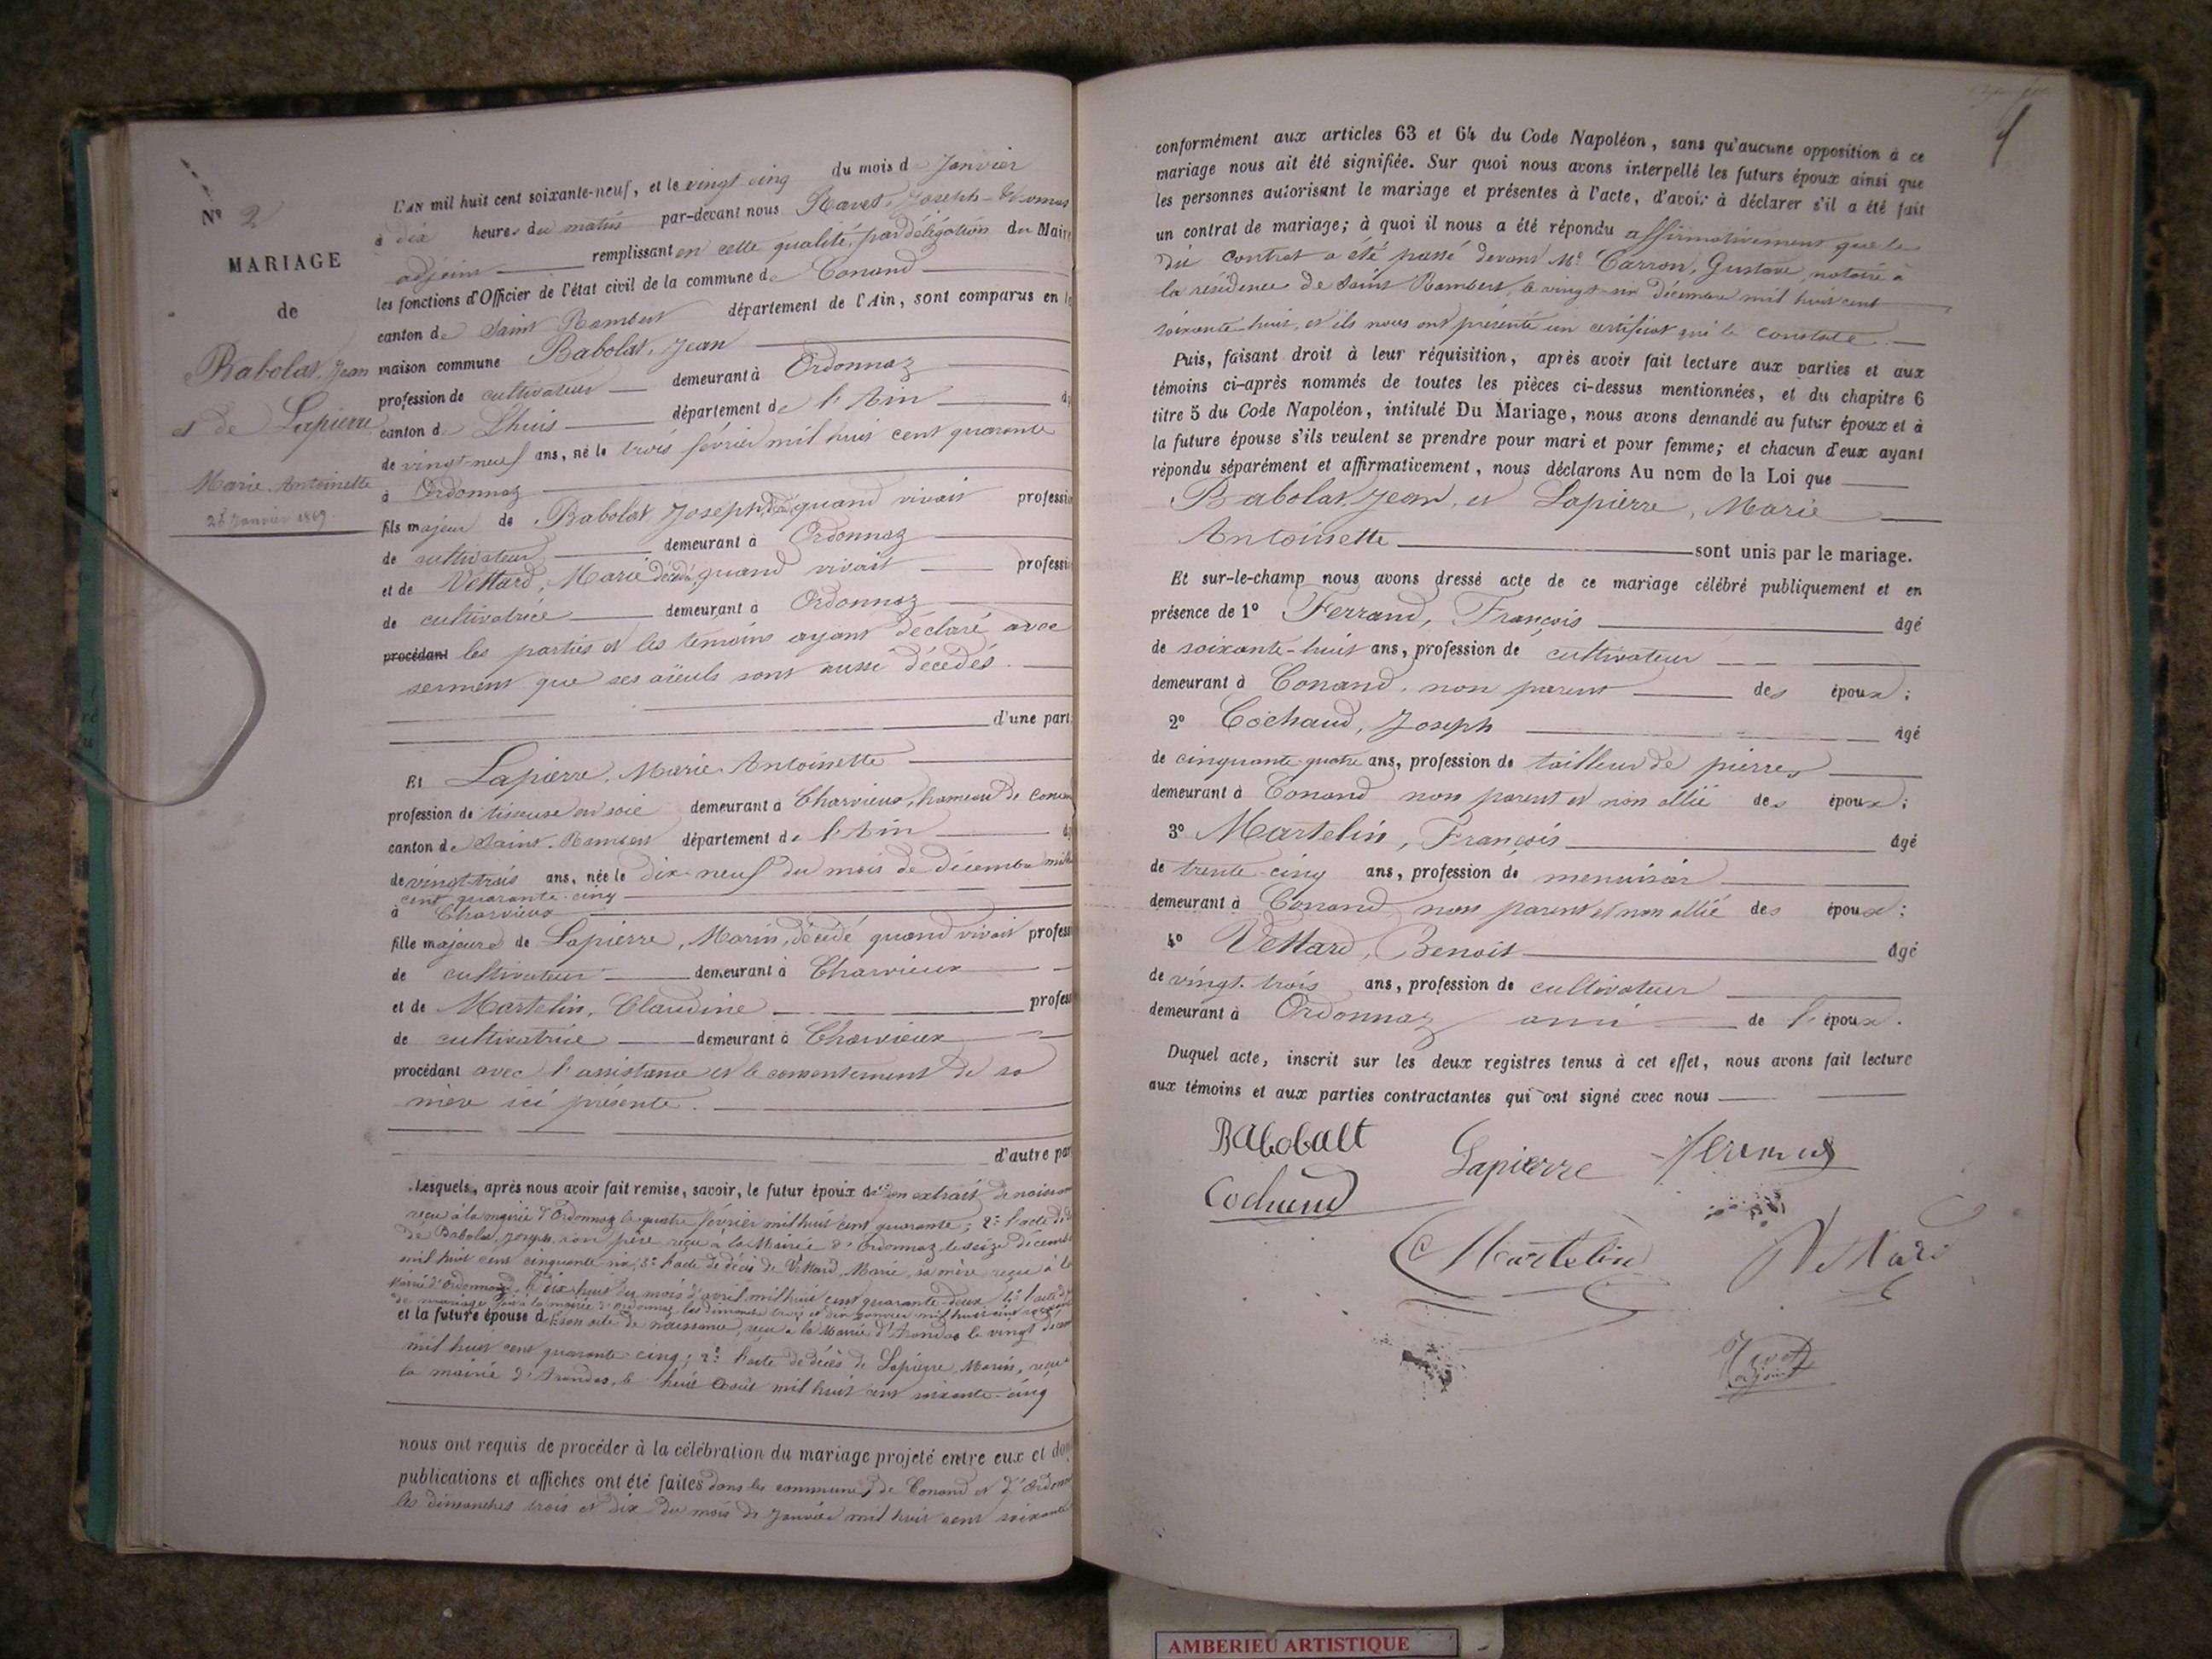 N° 2
MARIAGE
de
Babolat, Jean
et de Lapierre
Marie Antoinette
25 Janvier 1869.
L'AN mil huit cent soixante-neuf, et le vingt cinq du mois d Janvier
à dix heures du matin par-devant nous Ravet, Joseph-
adjoint remplissant en cette qualité, par délégation du Maire
les fonctions d'Officier de l'état civil de la commune de Conand
canton de Saint Rambert département de l'Ain, sont comparus en la
maison commune Babolat, Jean
profession de cultivateur demeurant à Ordonnaz
canton de Lhuis département de l'Ain
de vingt-neuf ans, né le trois février mil huit cent quarante
à Ordonnaz
fils majeur de Babolat Joseph, quand vivait professi
de cultivateur demeurant à Ordonnaz
et de Vettard, Marie décédée quand vivait professi
de cultivatrice demeurant à Ordonnaz
procédant les parties et les témoins ayant déclaré avec
serment que ses aïeuls sont aussi décédés.
d'une part
Et Lapierre, Marie Antoinette
profession de tisseuse en soie demeurant à Charvieux, hameau de Conan
canton de Saint-Rambert département de l'Ain
de vingt-trois ans, née le dix-neuf du mois de décembre mil
cent quarante-cinq
à Charvieux
fille majeure de Lapierre, Marin, décédé quand vivait profess
de cultivateur demeurant à Charvieux
et de Martelin, Claudine profess
de cultivatrice demeurant à Charvieux
procédant avec l'assistance et le consentement de sa
mère ici présente.
d'autre par
Lesquels, après nous avoir fait remise, savoir, le futur époux de 1° son extrait de naissan
reçu à la mairie d'Ordonnaz le quatre février mil huit cent quarante; 2° l'acte de dé
de Babolat, Joseph, son père, reçu à la Mairie d'Ordonnaz le seize décemb
mil huit cent cinquante-six, 3° l'acte de décès de Vettard, Marie, sa mère, reçu à la
Mairie d'Ordonnaz, le dix-huit du mois d'avril mil huit cent quarante-deux 4° l'acte de
de mariage fait à la mairie d'Ordonnaz les dimanches trois et dix janvier mil huit cent
et la future épouse de 1° son acte de naissance, reçu à la Mairie d'Arandas le vingt décem
mil huit cent quarante-cinq; 2° l'acte de décès de Lapierre, Marin, reçu à
la mairie d'Arandas, le huit août mil huit cent soixante-cinq
nous ont requis de procéder à la célébration du mariage projeté entre eux et don
publications et affiches ont été faites dans les communes de Conand et d'Ordonn
les dimanches trois et dix du mois de Janvier mil huit cent soixante
conformément aux articles 63 et 64 du Code Napoléon, sans qu'aucune opposition à ce
mariage nous ait été signifiée. Sur quoi nous avons interpellé les futurs époux ainsi que
les personnes autorisant le mariage et présentes à l'acte, d'avoir à déclarer s'il a été fait
un contrat de mariage; à quoi il nous a été répondu affirmativement que le
dit contrat a été passé devant Me Carron, Gustave, notaire à
la résidence de Saint Rambert, le vingt-six décembre mil huit cent
soixante-huit, et ils nous ont présenté un certificat qui le constate.
Puis, faisant droit à leur réquisition, après avoir fait lecture aux parties et aux
témoins ci-après nommés de toutes les pièces ci-dessus mentionnées, et du chapitre 6
titre 5 du Code Napoléon, intitulé Du Mariage, nous avons demandé au futur époux et à
la future épouse s'ils veulent se prendre pour mari et pour femme; et chacun d'eux ayant
répondu séparément et affirmativement, nous déclarons Au nom de la Loi que
Babolat, Jean, et Lapierre, Marie
Antoinette sont unis par le mariage.
Et sur-le-champ nous avons dressé acte de ce mariage célébré publiquement et en
présence de 1° Ferrand, François âgé
de soixante-huit ans, profession de cultivateur
demeurant à Conand, non parent des époux;
2° Cochaud, Joseph âgé
de cinquante-quatre ans, profession de tailleur de pierres
demeurant à Conand non parent et non allié des époux;
3° Martelin, François âgé
de trente-cinq ans, profession de menuisier
demeurant à Conand non parent et non allié des époux;
4° Vettard, Benoit âgé
de vingt-trois ans, profession de cultivateur
demeurant à Ordonnaz ami de l'époux.
Duquel acte, inscrit sur les deux registres tenus à cet effet, nous avons fait lecture
aux témoins et aux parties contractantes qui ont signé avec nous
Babobalt Lapierre
Cochaud
Martelin Vettard
Ravet
adjoint
AMBERIEU ARTISTIQUE